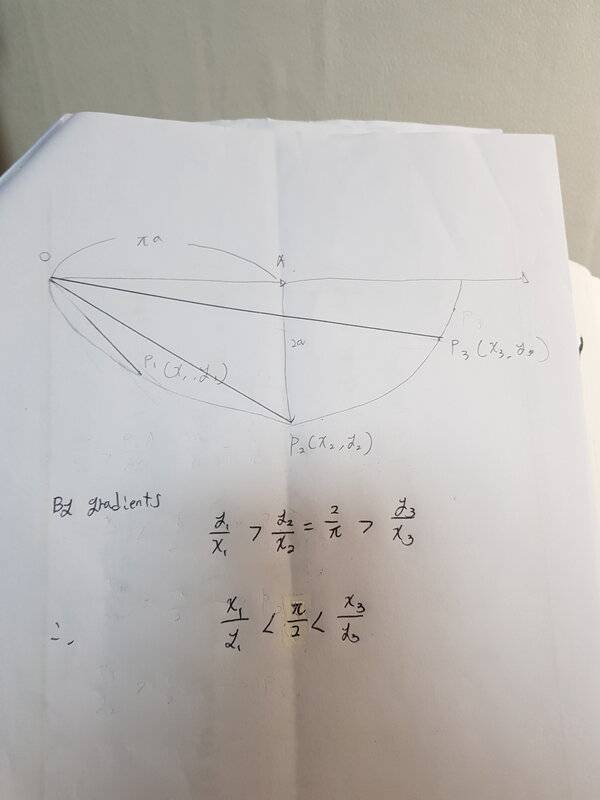 πa
O A
2a
P₁ (x₁, y₁)
P₃ (x₃, y₃)
P₂ (x₂, y₂)
By gradients
y₁/x₁ > y₂/x₂ = 2/π > y₃/x₃
∴ x₁/y₁ < π/2 < x₃/y₃